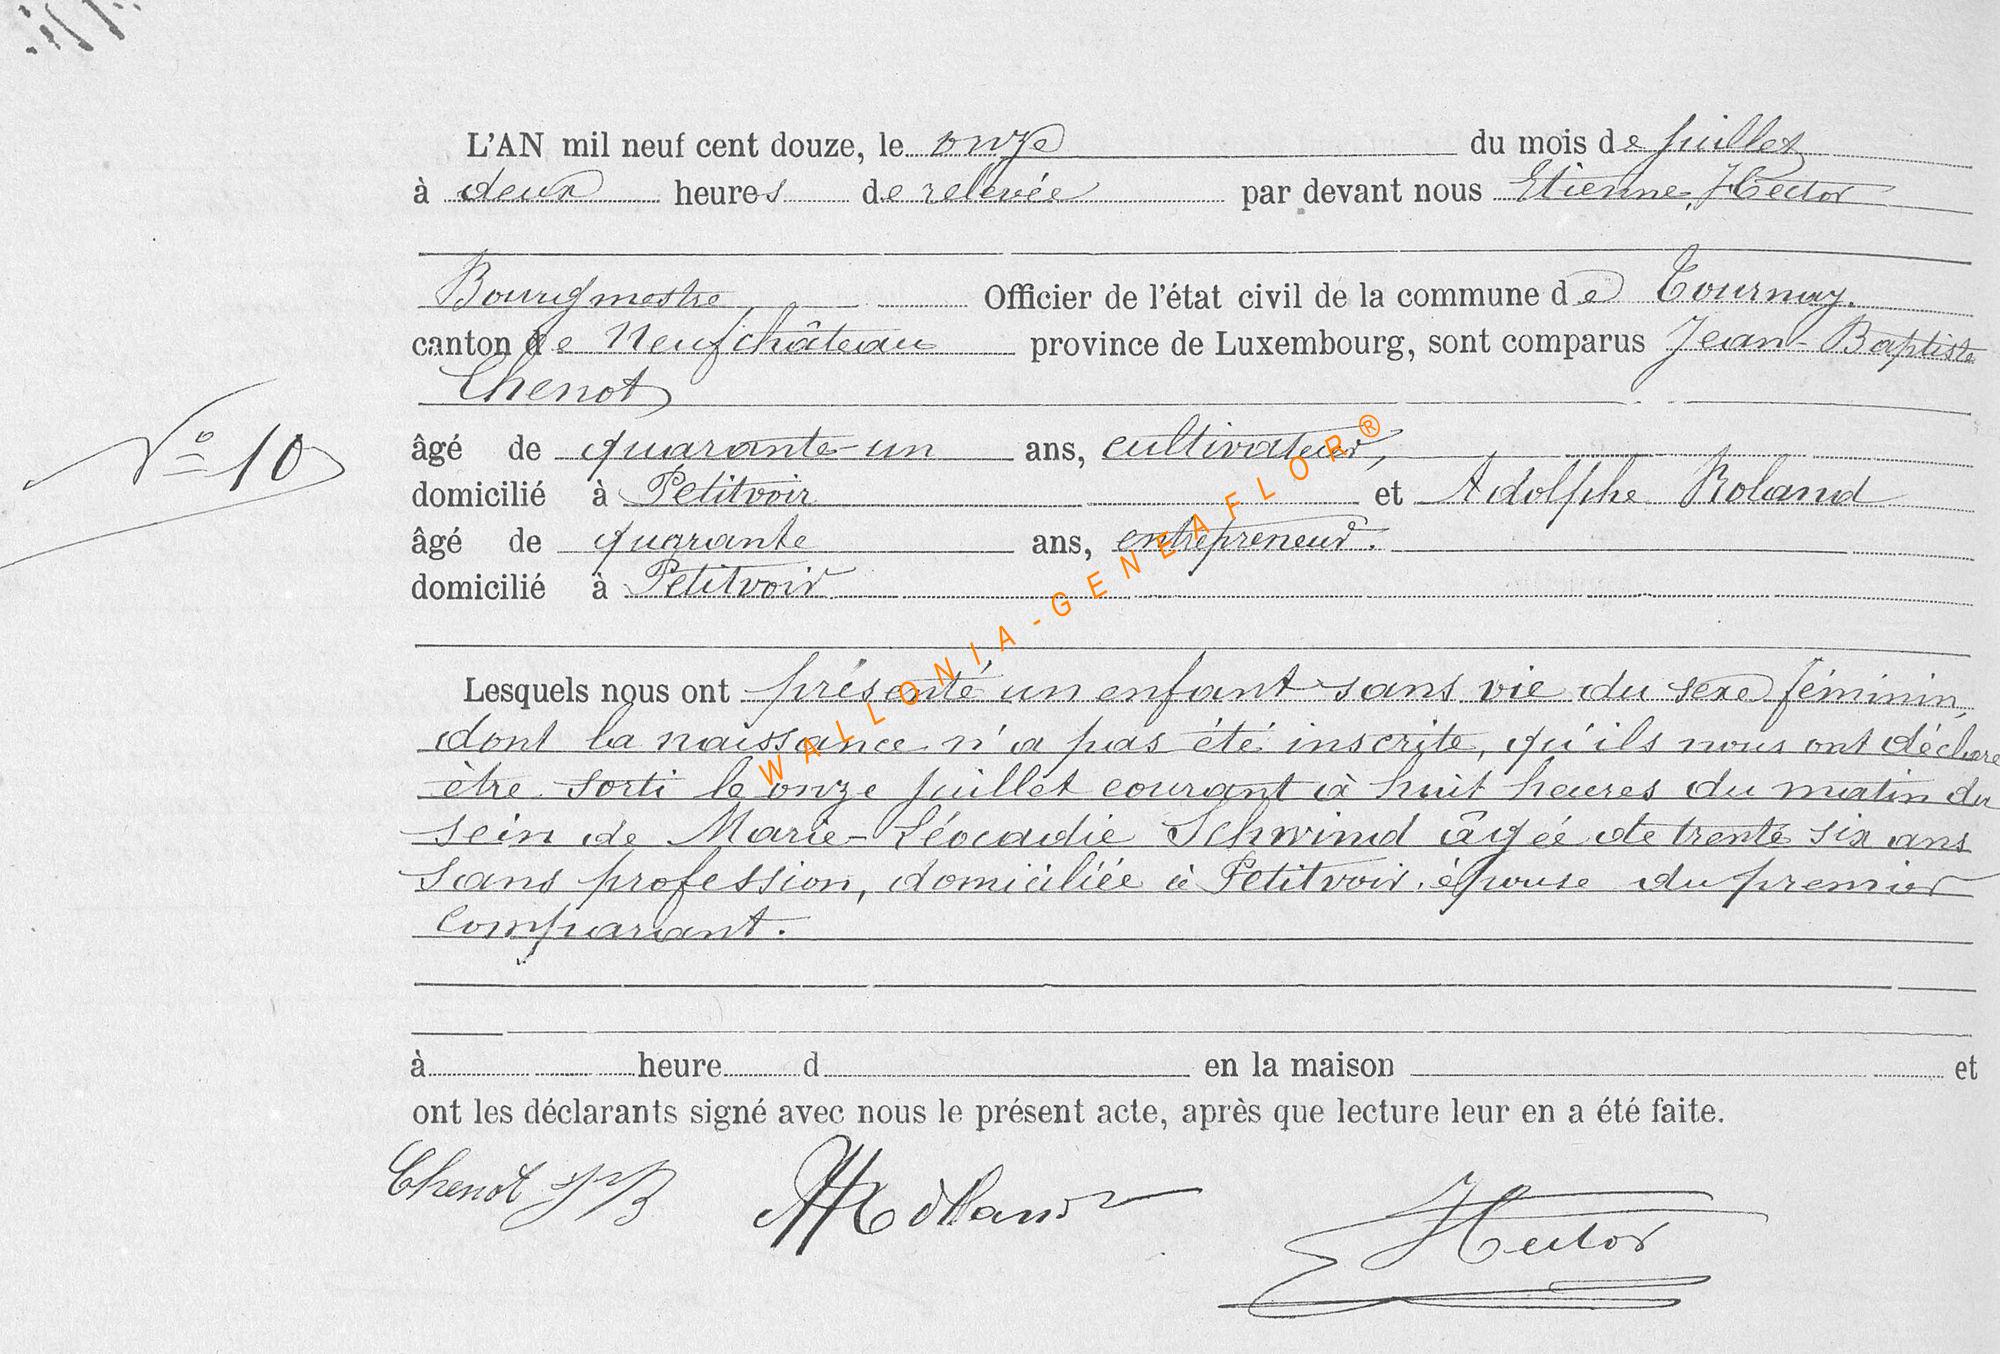 L'AN mil neuf cent douze, le onze du mois de juillet
à deux heures de relevée par devant nous Etienne, Hector
Bourgmestre Officier de l'état civil de la commune de Tournay.
canton de Neufchâteau province de Luxembourg, sont comparus Jean-Baptiste
Chenot
N° 10
âgé de quarante-un ans, cultivateur,
domicilié à Petitvoir et Adolphe Roland
âgé de quarante ans, entrepreneur.
domicilié à Petitvoir
Lesquels nous ont présenté un enfant sans vie du sexe féminin,
dont la naissance n'a pas été inscrite, qu'ils nous ont déclaré
être sorti le onze juillet courant à huit heures du matin du
sein de Marie-Léocadie Schwind âgée de trente six ans
sans profession, domiciliée à Petitvoir, épouse du premier
comparant.
à heure d en la maison et
ont les déclarants signé avec nous le présent acte, après que lecture leur en a été faite.
Chenot JB Rolland Hector
WALLONIA-GENEAFLOR®